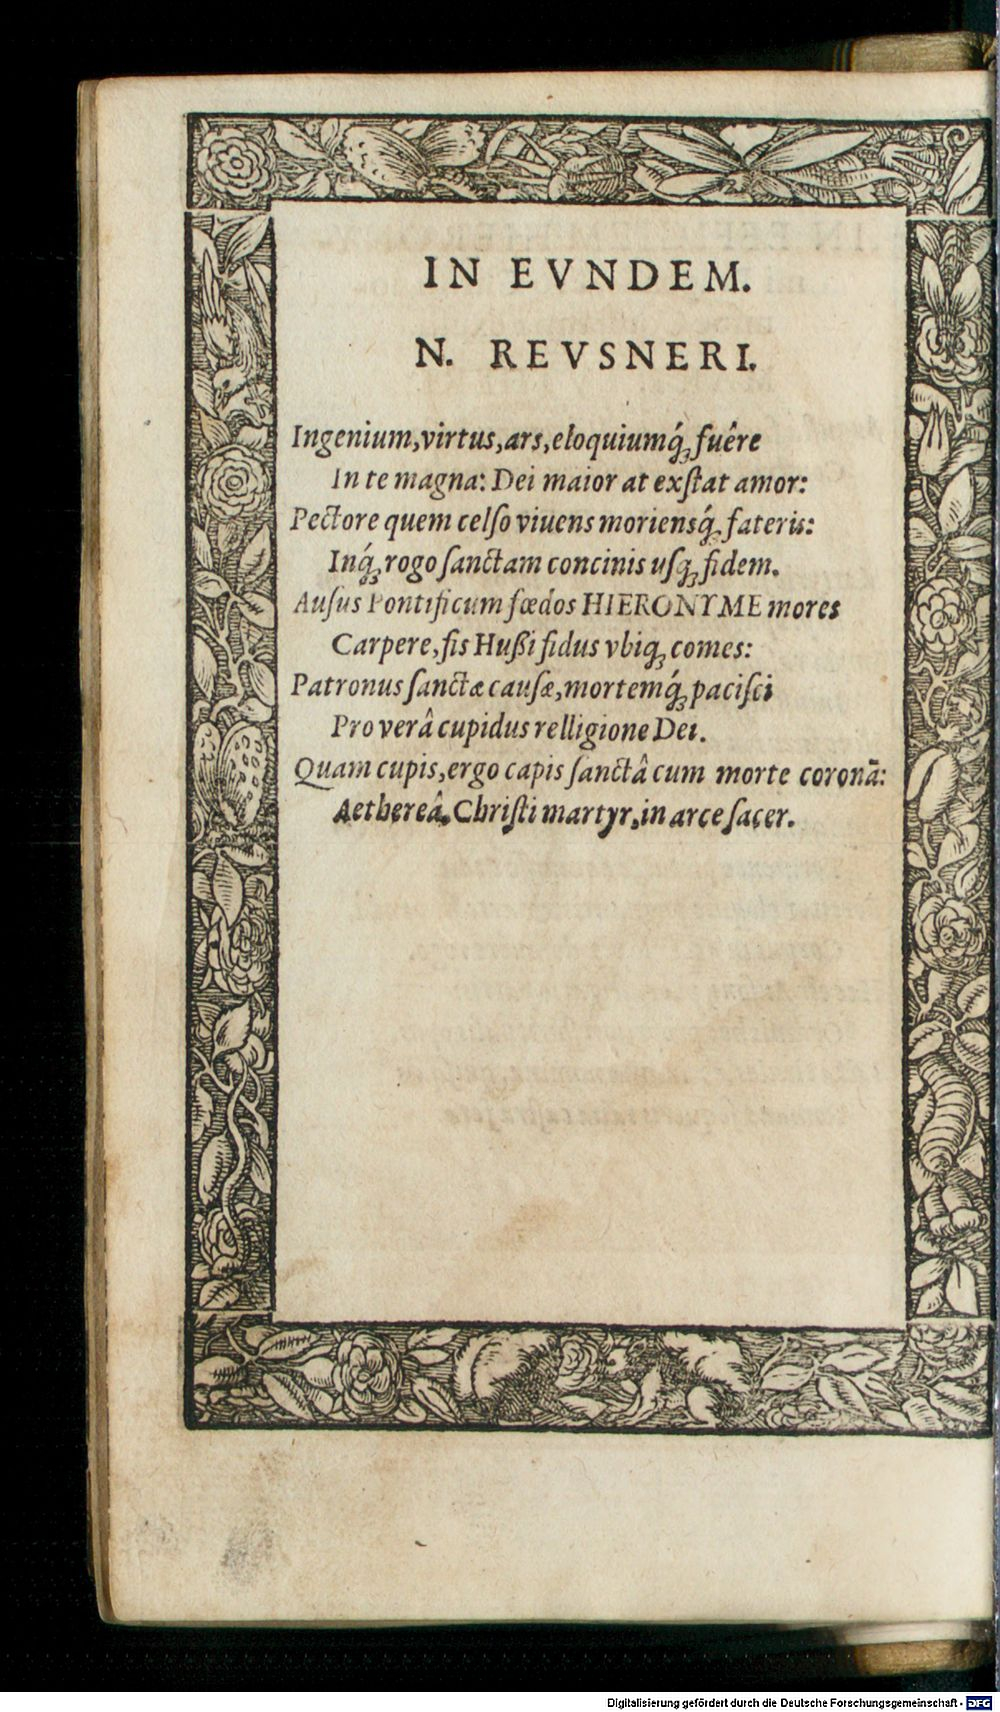 IN EVNDEM.
N. REVSNERI.
Ingenium, virtus, ars, eloquiumq́; fuêre
In te magna: Dei maior at exſtat amor:
Pectore quem celſo viuens moriensq́; fateris:
Inq́; rogo ſanctam concinis uſq; fidem.
Auſus Pontificum fœdos HIERONYME mores
Carpere, ſis Hußi fidus vbiq; comes:
Patronus ſanctæ cauſæ, mortemq́; paciſci
Pro verâ cupidus relligione Dei.
Quam cupis, ergo capis ſanctâ cum morte coronā:
Aethereâ, Chriſti martyr, in arce ſacer.
Digitalisierung gefördert durch die Deutsche Forschungsgemeinschaft - DFG